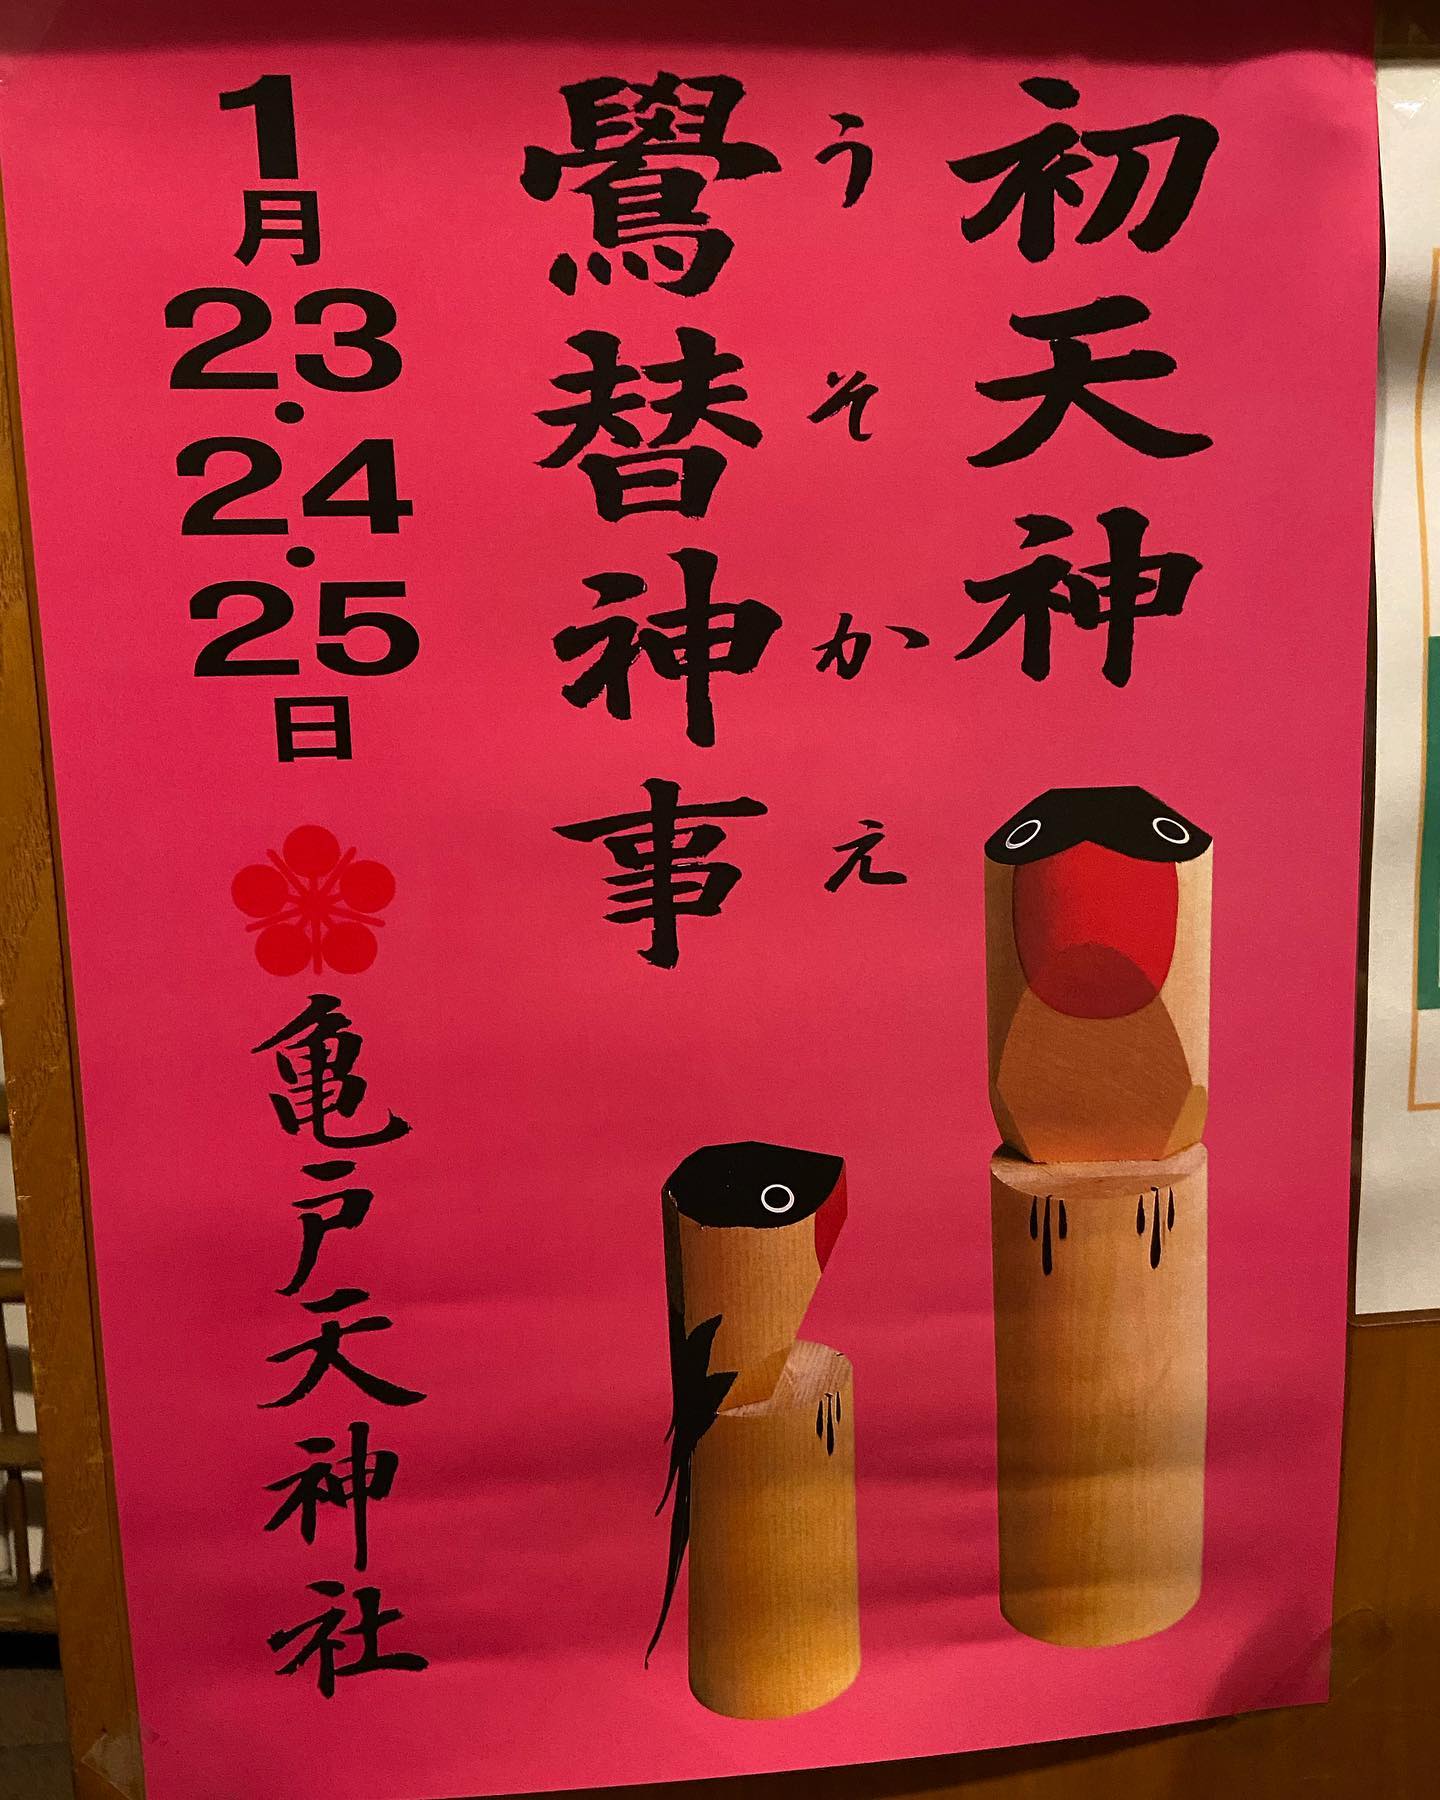 初天神
うそかえ
鷽替神事
1月23・24・25日
亀戸天神社